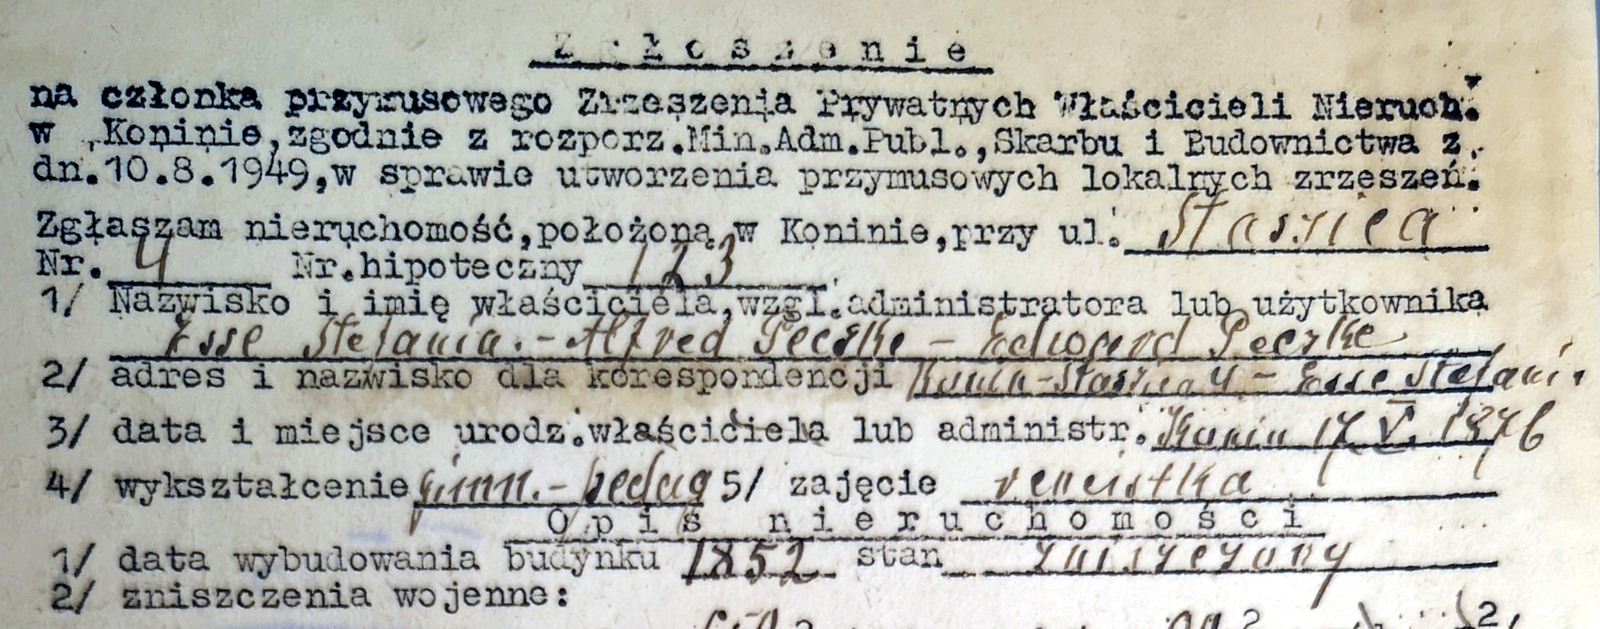 Zgłoszenie
na członka przymusowego Zrzeszenia Prywatnych Właścicieli Nieruch.
w Koninie, zgodnie z rozporz.Min.Adm.Publ.,Skarbu i Budownictwa z
dn.10.8.1949,w sprawie utworzenia przymusowych lokalnych zrzeszeń.
Zgłaszam nieruchomość,położoną w Koninie,przy ul. Staszica
Nr. 4 Nr.hipoteczny 123
1/ Nazwisko i imię właściciela,wzgl.administratora lub użytkownika
Esse Stefania.- Alfred Peczke - Edward Peczke
2/ adres i nazwisko dla korespondencji Konin-Staszica 4 - Esse Stefania
3/ data i miejsce urodz.właściciela lub administr. Konin 17 V. 1876
4/ wykształcenie gimn.- pedag 5/ zajęcie rencistka
Opis nieruchomości
1/ data wybudowania budynku 1852 stan zniszczony
2/ zniszczenia wojenne: